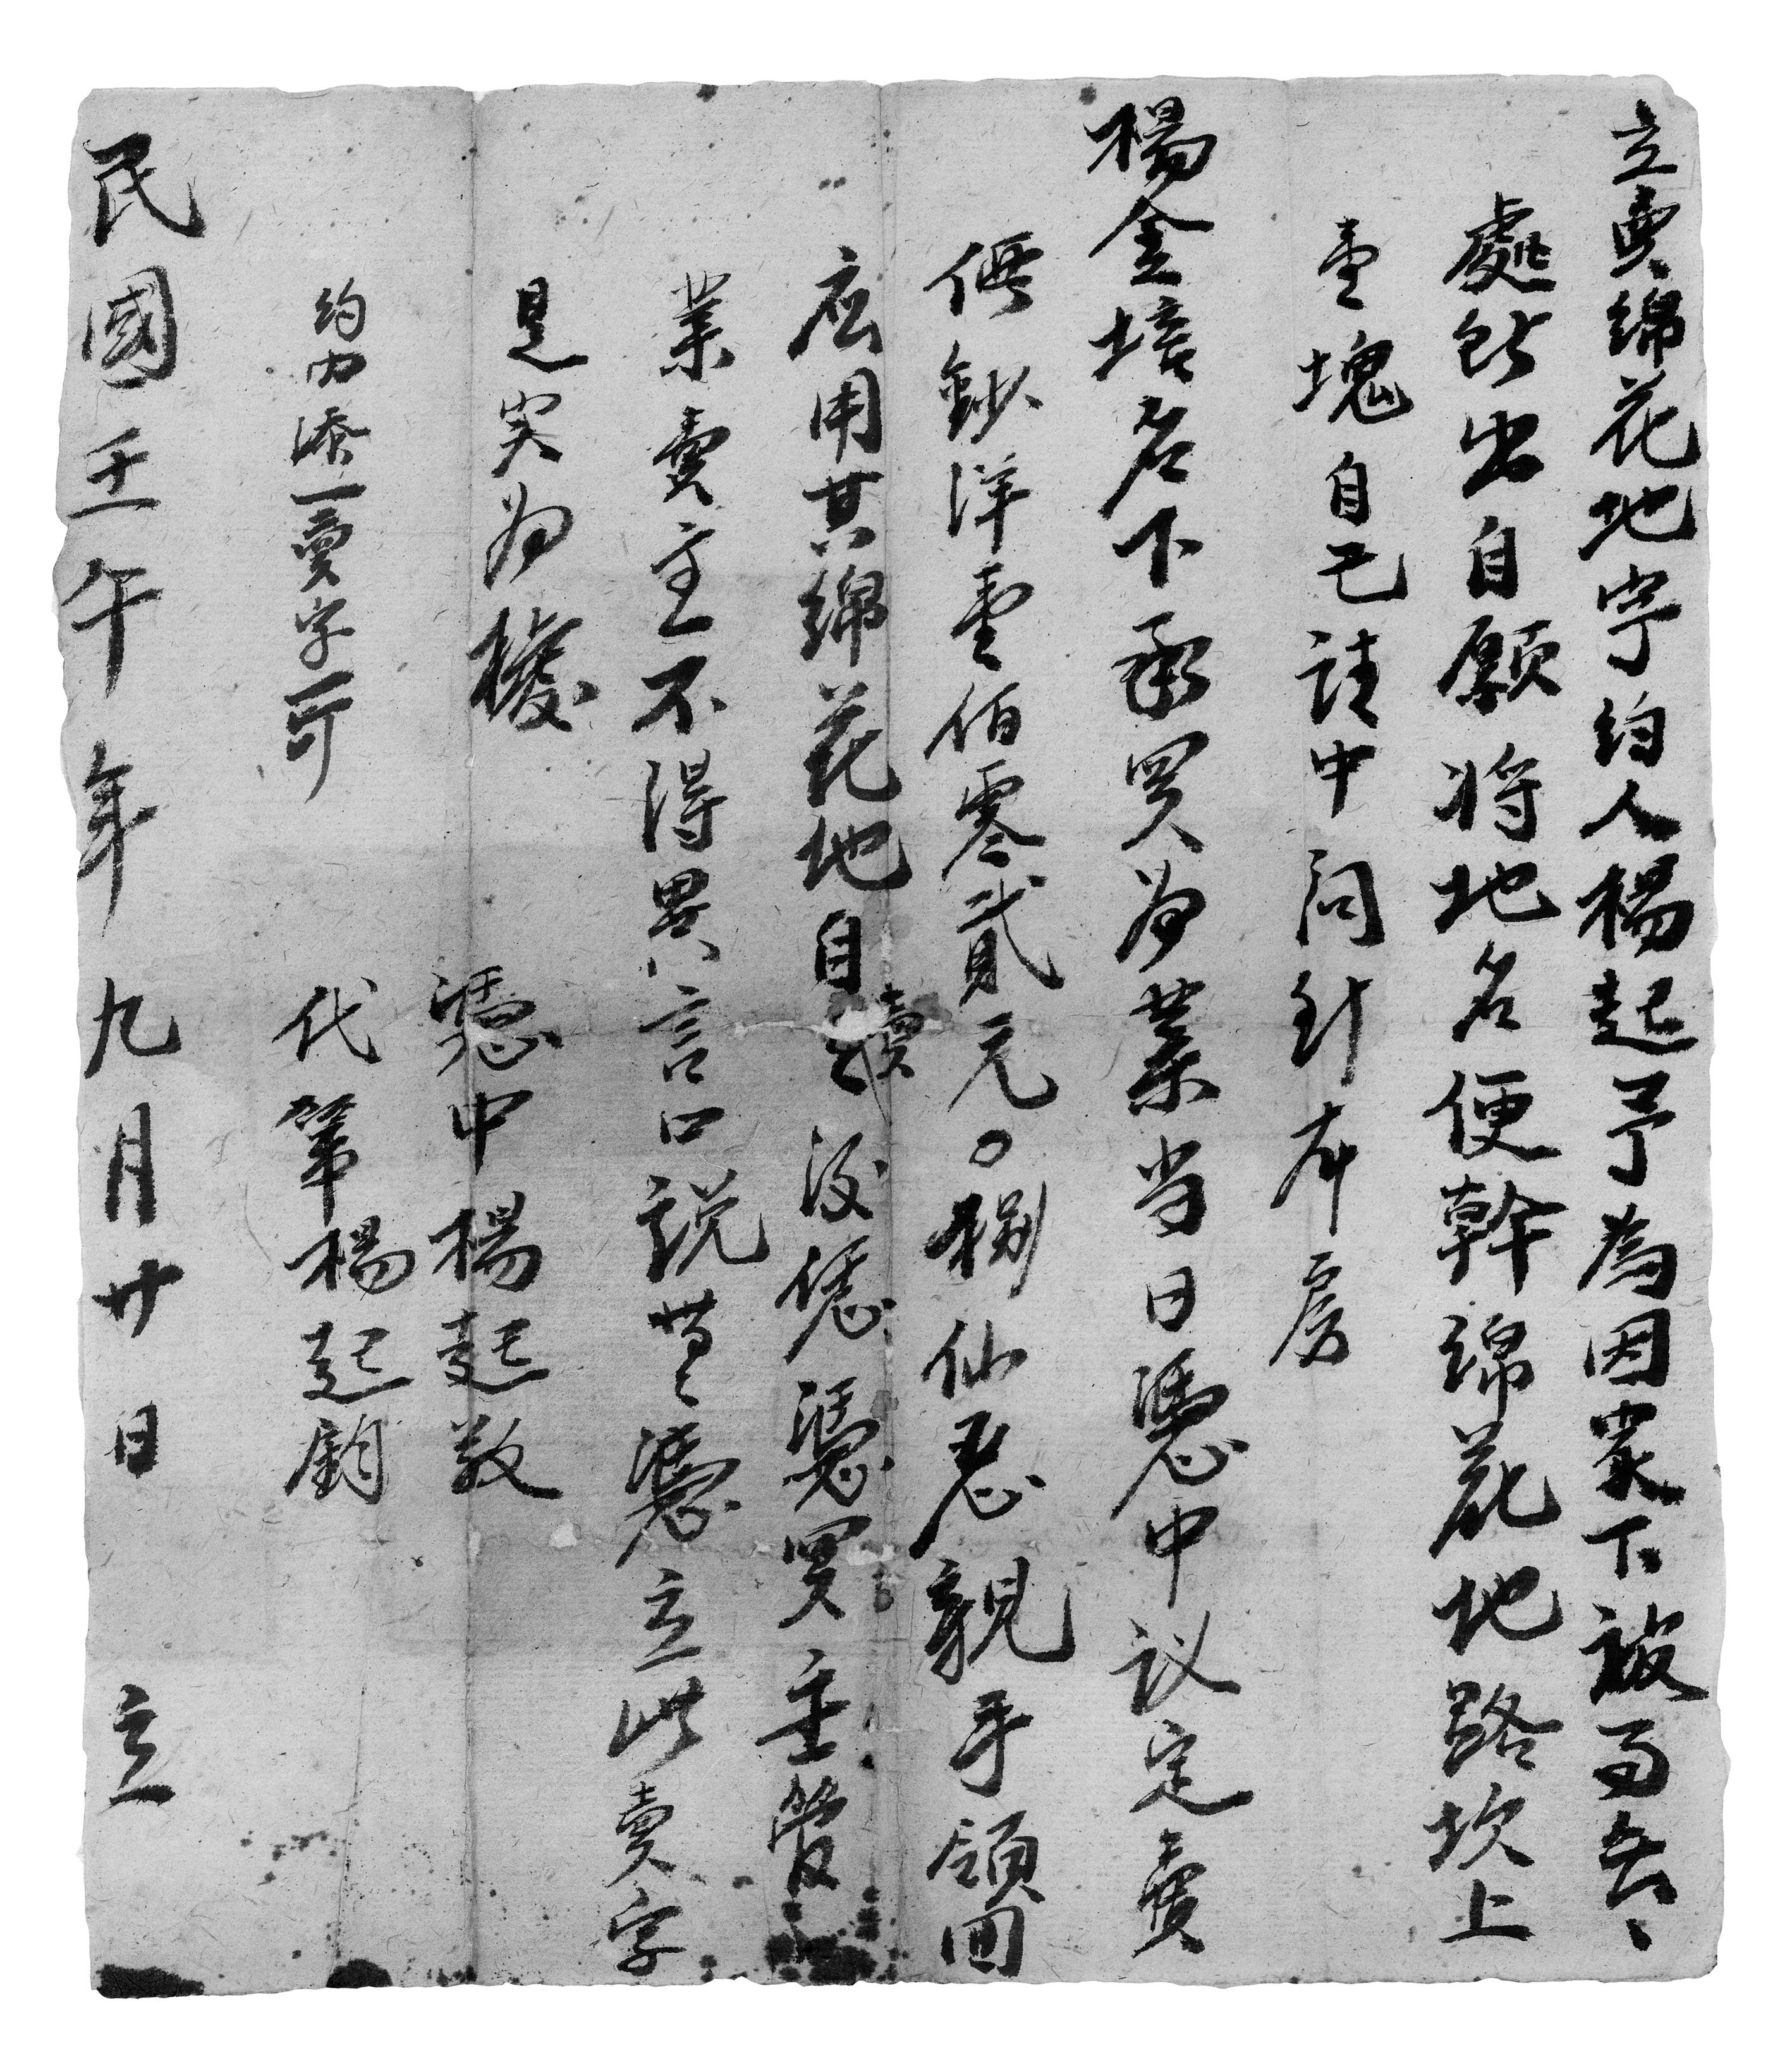 立賣綿花地字約人楊起予為因家下被
處출自願將地名便幹綿花地路坎上
壹塊自己請中问到本房
楊金培名下承買为業当日憑中议定賣
價鈔洋壹伯零貳元○捌仙忍親手領回
应用其綿花地自賣之後憑買主管
業賣主不得異言口説無憑立此賣字
是实为據
約内添一賣字可
憑中楊起敖
代筆楊起鈞
民國壬午年九月廿日立